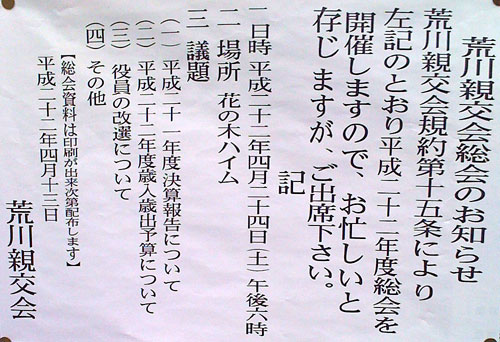 荒川親交会総会のお知らせ
荒川親交会規約第十五条により
左記のとおり平成二十二年度総会を
開催しますので、お忙しいと
存じますが、ご出席下さい。
記
一 日時 平成二十二年四月二十四日(土)午後六時
二 場所 花の木ハイム
三 議題
(一) 平成二十一年度決算報告について
(二) 平成二十二年度歳入歳出予算について
(三) 役員の改選について
(四) その他
【総会資料は印刷が出来次第配布します】
平成二十二年四月十三日
荒川親交会